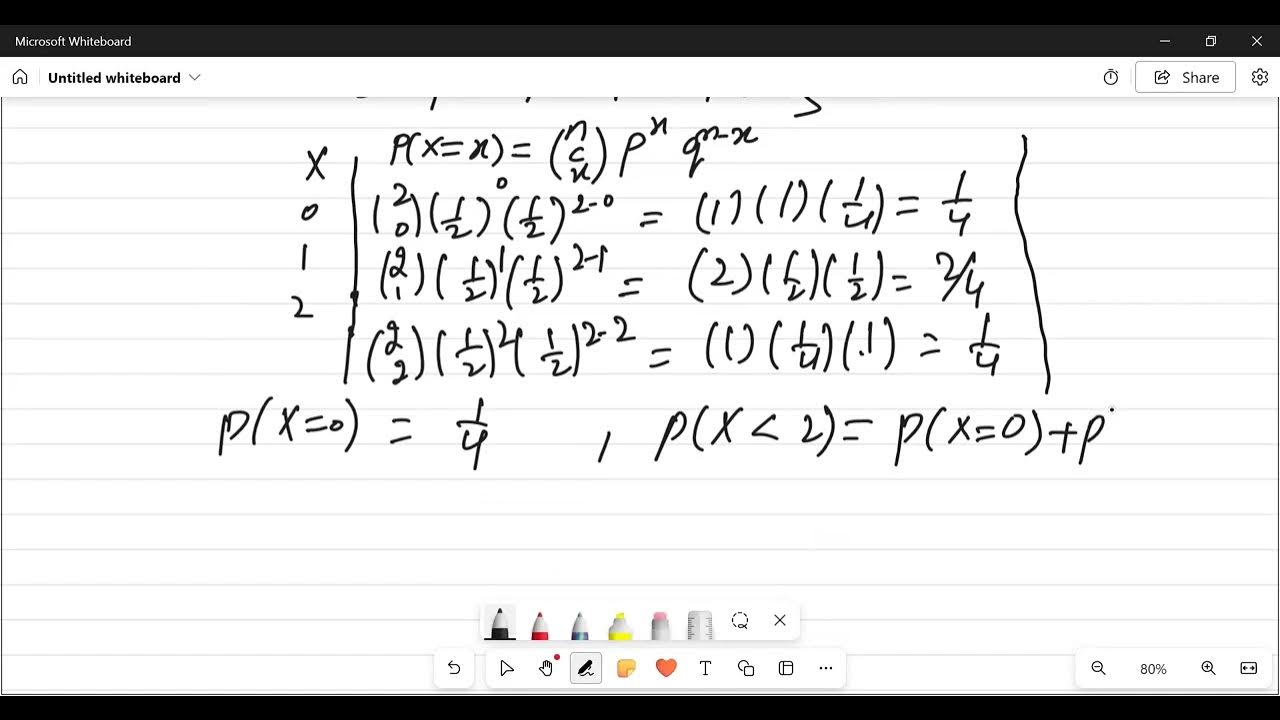 Microsoft Whiteboard
Untitled whiteboard
Share
X P(X=x) = (n c x) p^x q^n-x
0 (2 0)(1/2)^0(1/2)^2-0 = (1)(1)(1/4) = 1/4
1 (2 1)(1/2)^1(1/2)^2-1 = (2)(1/2)(1/2) = 2/4
2 (2 2)(1/2)^2(1/2)^2-2 = (1)(1/4)(1) = 1/4
P(X=0) = 1/4 , P(X < 2) = P(X=0)+P
80%